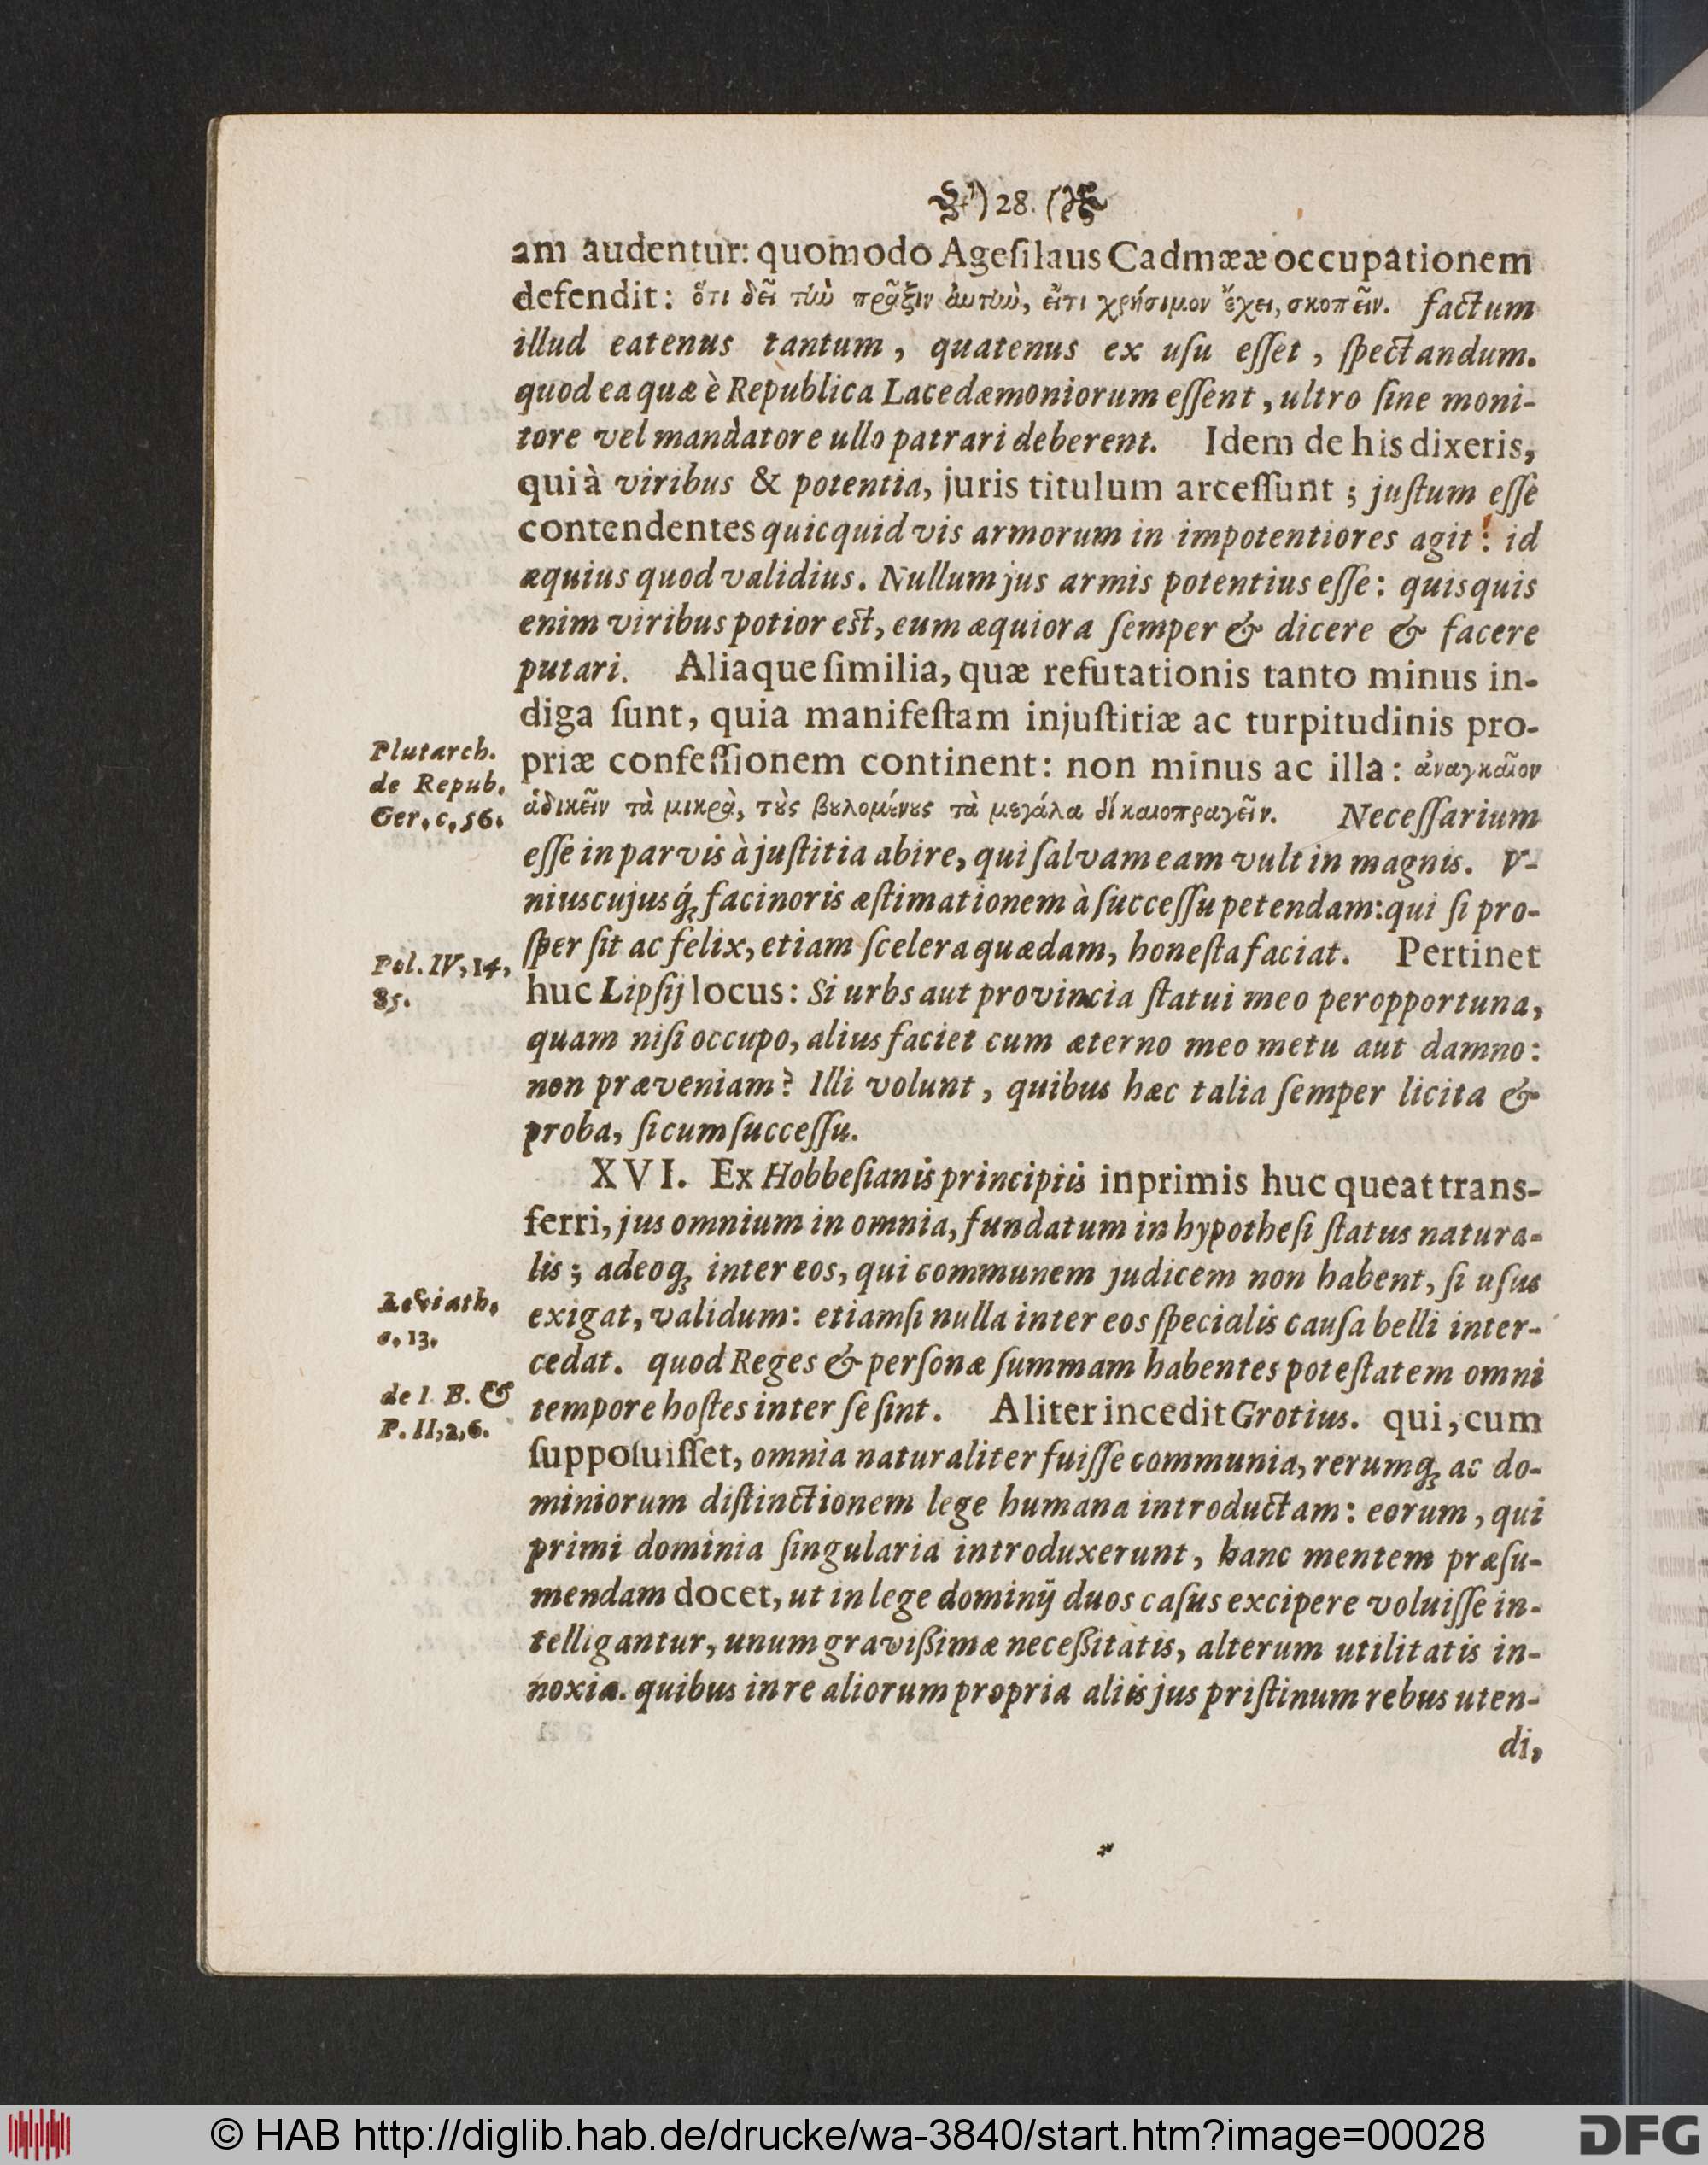 ) 28. (
am audentur: quomodo Agesilaus Cadmææ occupationem
defendit: ὅτι δεῖ τίω πρᾶξιν ἀυτίω, εἴτι χρήσιμον ἔχει, σκοπεῖν. factum
illud eatenus tantum, quatenus ex uſu eſſet, ſpectandum.
quod ea quæ è Republica Lacedæmoniorum eſſent, ultro ſine moni-
tore vel mandatore ullo patrari deberent. Idem de his dixeris,
qui à viribus & potentia, juris titulum arceſſunt; juſtum eſſe
contendentes quicquid vis armorum in impotentiores agit: id
æquius quod validius. Nullum jus armis potentius eſſe: quisquis
enim viribus potior est, eum æquiora ſemper & dicere & facere
putari. Aliaque ſimilia, quæ refutationis tanto minus in-
diga ſunt, quia manifeſtam injuſtitiæ ac turpitudinis pro-
Plutarch.
de Repub.
Ger. c. 56.
priæ confeſſionem continent: non minus ac illa: ἀναγκαῖον
ἀδικεῖν τὰ μικρὰ, τὺς βυλομένυς τὰ μεγάλα δίκαιοπραγεῖν. Neceſſarium
eſſe in parvis à juſtitia abire, qui ſalvam eam vult in magnis. V-
niuscujusq́; facinoris æſtimationem à ſucceſſu petendam: qui ſi pro-
ſper ſit ac felix, etiam ſcelera quædam, honeſta faciat. Pertinet
Pol. IV, 14,
85.
huc Lipſij locus: Si urbs aut provincia ſtatui meo peropportuna,
quam niſi occupo, alius faciet cum æterno meo metu aut damno:
non præveniam? Illi volunt, quibus hæc talia ſemper licita &
proba, ſi cum ſucceſſu.
XVI. Ex Hobbeſianis principiis inprimis huc queat trans-
ferri, jus omnium in omnia, fundatum in hypotheſi ſtatus natura-
lis; adeoq; inter eos, qui communem judicem non habent, ſi uſus
Leviath.
c. 13.
exigat, validum: etiamſi nulla inter eos ſpecialis cauſa belli inter-
cedat. quod Reges & perſonæ ſummam habentes poteſtatem omni
de I. B. &
P. II, 2, 6.
tempore hoſtes inter ſe ſint. Aliter incedit Grotius. qui, cum
ſuppoſuiſſet, omnia naturaliter fuiſſe communia, rerumq; ac do-
miniorum diſtinctionem lege humana introductam: eorum, qui
primi dominia ſingularia introduxerunt, hanc mentem præſu-
mendam docet, ut in lege dominij duos caſus excipere voluiſſe in-
telligantur, unum graviſſimæ neceſſitatis, alterum utilitatis in-
noxia. quibus in re aliorum propria aliis jus priſtinum rebus uten-
di,
© HAB http://diglib.hab.de/drucke/wa-3840/start.htm?image=00028
DFG